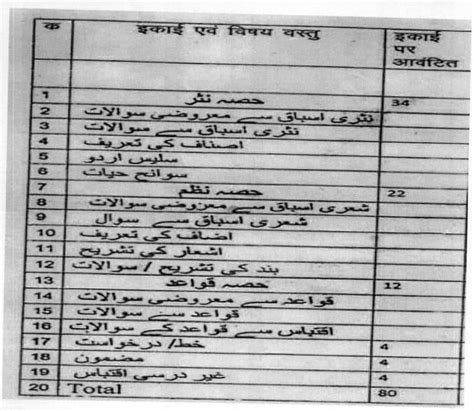 क इकाई एवं विषय वस्तु इकाई पर आवंटित
1 حصہ نثر 34
2 نثری اسباق سے معروضی سوالات
3 نثری اسباق سے سوالات
4 اصناف کی تعریف
5 سلیس اردو
6 سوانح حیات
7 حصہ نظم 22
8 شعری اسباق سے معروضی سوالات
9 شعری اسباق سے سوال
10 اضاف کی تعریف
11 اشعار کی تشریح
12 بند کی تشریح / سوالات
13 حصہ قواعد 12
14 قواعد سے معروضی سوالات
15 قواعد سے سوالات
16 اقتباس سے قواعد کے سوالات
17 خط/ درخواست 4
18 مضمون 4
19 غیر درسی اقتباس 4
20 Total 80